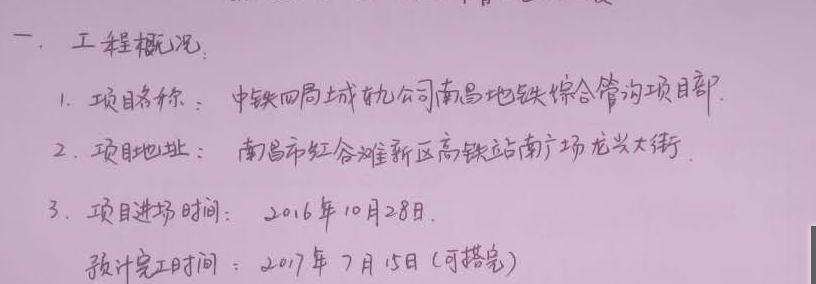 一. 工程概况.
1. 项目名称: 中铁四局城轨公司南昌地铁综合管沟项目部.
2. 项目地址: 南昌市红谷滩新区高铁站南广场龙兴大街.
3. 项目进场时间: 2016年10月28日.
预计完工时间: 2017年7月15日(可搭完)